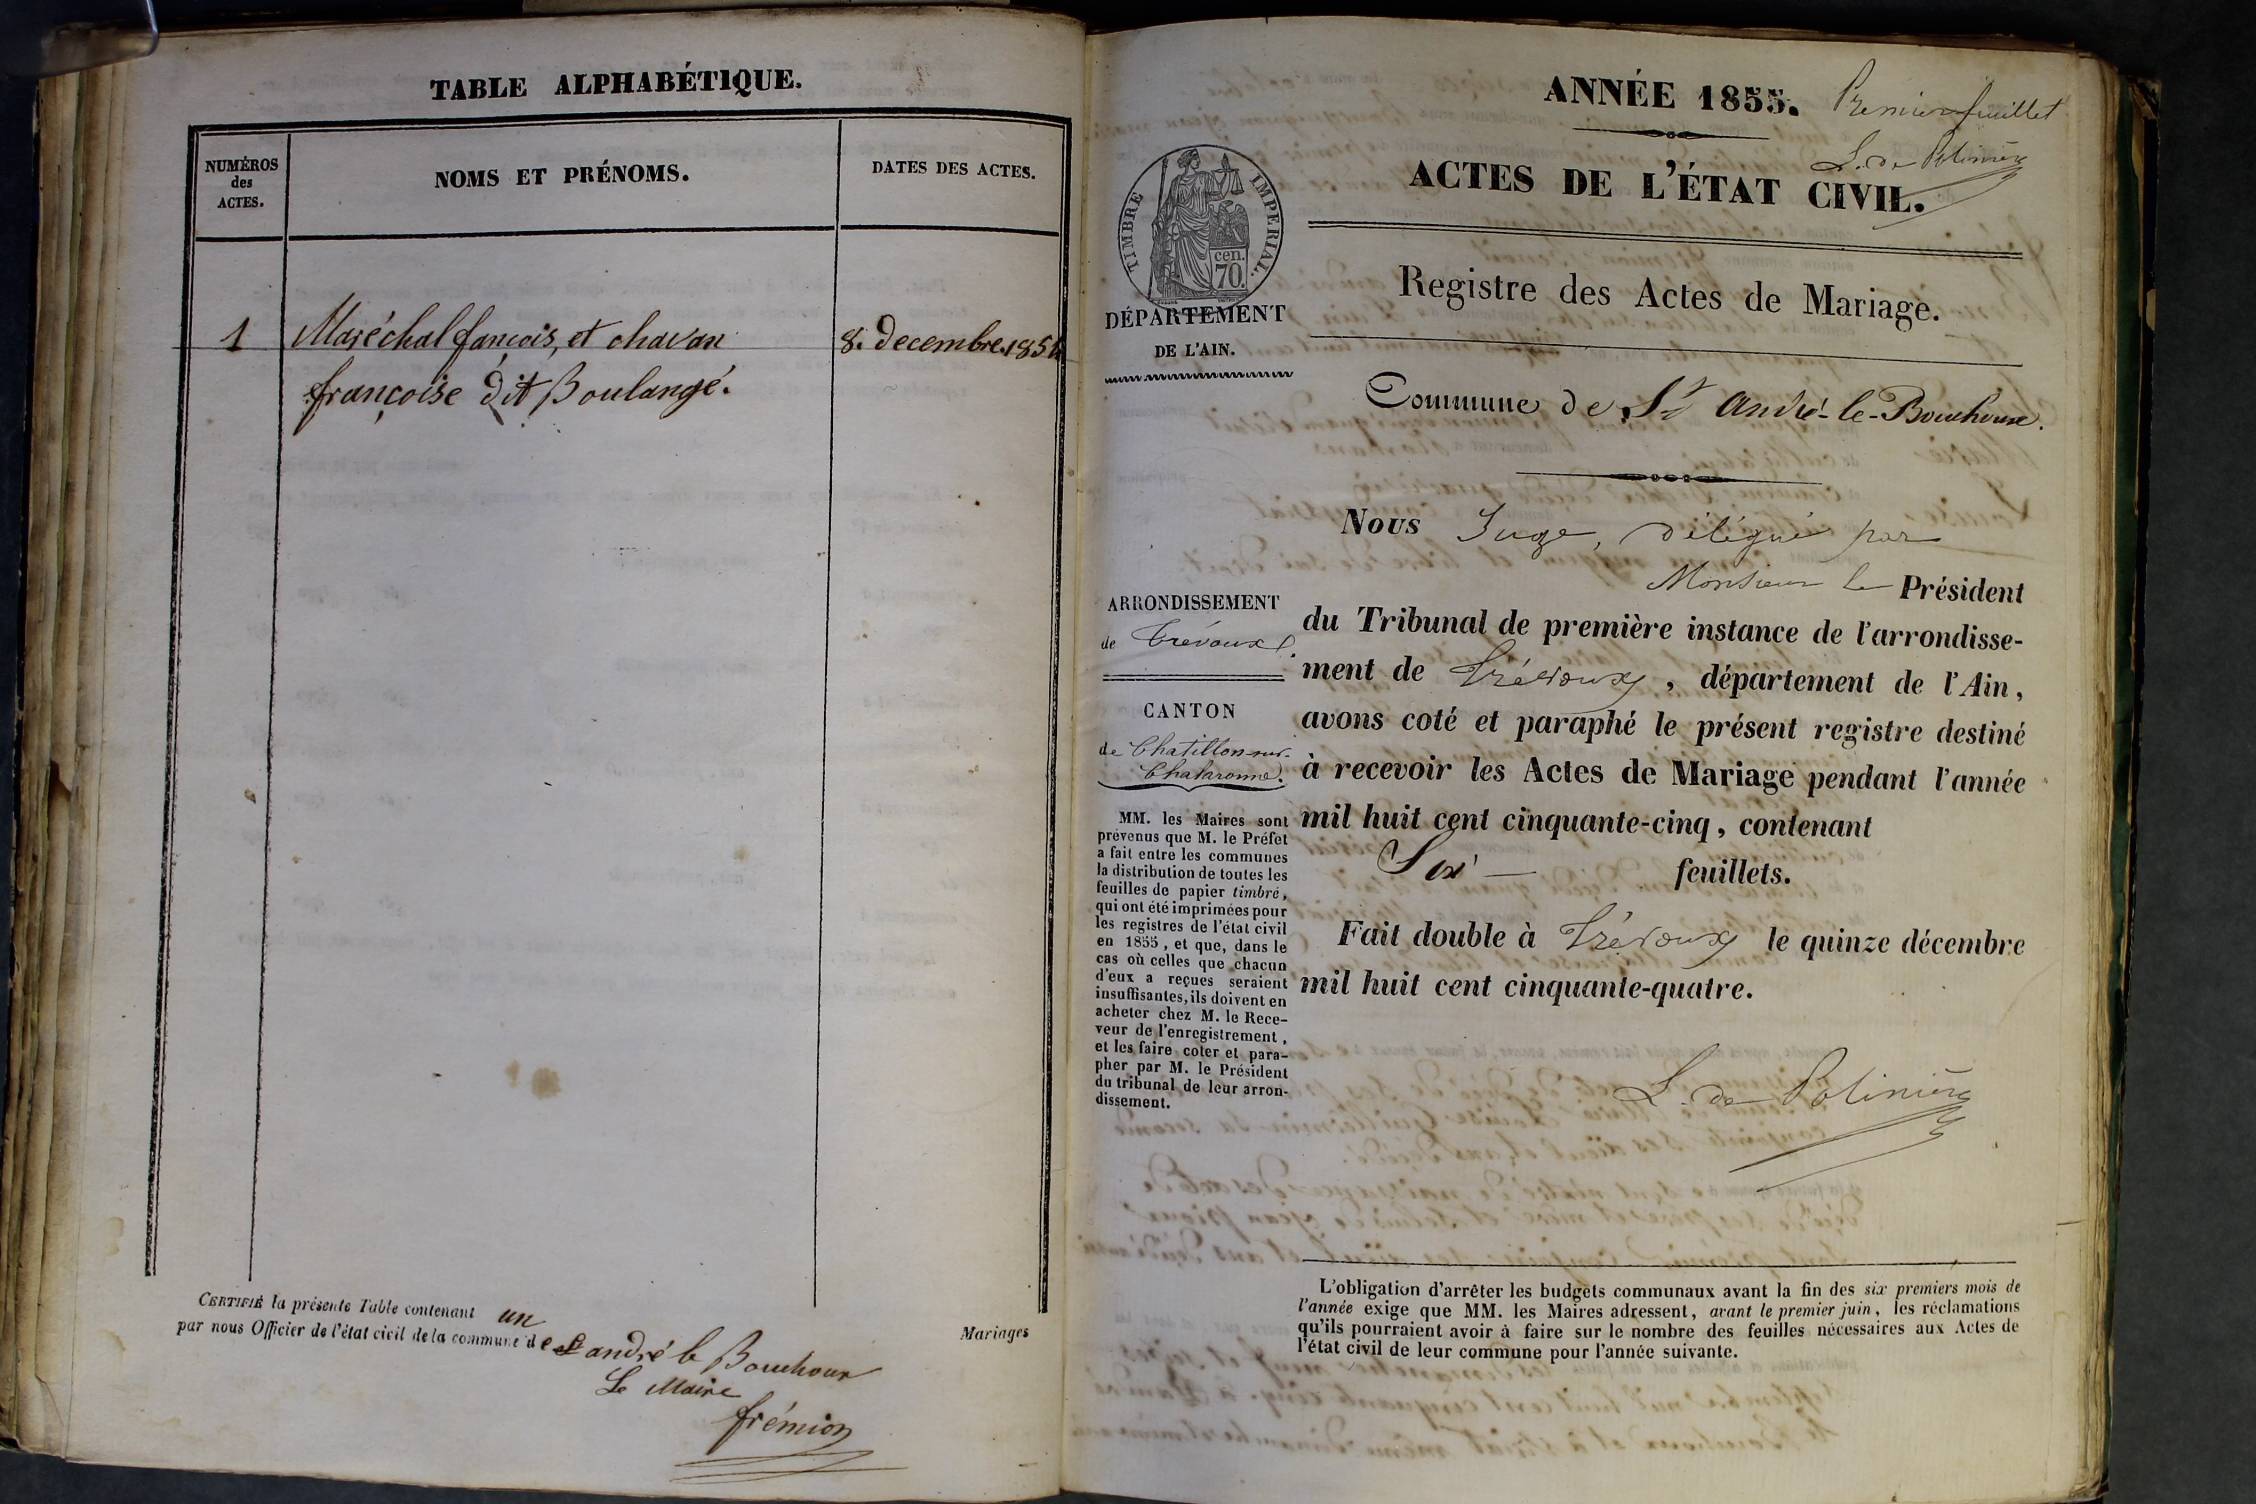 TABLE ALPHABÉTIQUE.
NUMÉROS
des
ACTES.
NOMS ET PRÉNOMS.
DATES DES ACTES.
1 Maréchal fançois, et chavan 8. decembre. 1854
françoise dit Boulangé.
CERTIFIÉ la présente Table contenant un Mariages
par nous Officier de l'état civil de la commune de St andré le Bouchoux
Le Maire
frémion
ANNÉE 1855.
Premier feuillet
L. de Polinière
ACTES DE L'ÉTAT CIVIL.
TIMBRE IMPERIAL.
cen.
70.
DÉPARTEMENT
DE L'AIN.
Registre des Actes de Mariage.
Commune de St André-le-Bouchoux.
ARRONDISSEMENT
de Trévoux.
CANTON
de Chatillon-sur-
Chalaronne.
MM. les Maires sont
prévenus que M. le Préfet
a fait entre les communes
la distribution de toutes les
feuilles de papier timbré,
qui ont été imprimées pour
les registres de l'état civil
en 1855, et que, dans le
cas où celles que chacun
d'eux a reçues seraient
insuffisantes, ils doivent en
acheter chez M. le Rece-
veur de l'enregistrement,
et les faire coter et para-
pher par M. le Président
du tribunal de leur arron-
dissement.
Nous Juge, délégué par
Monsieur le Président
du Tribunal de première instance de l'arrondisse-
ment de Trévoux, département de l'Ain,
avons coté et paraphé le présent registre destiné
à recevoir les Actes de Mariage pendant l'année
mil huit cent cinquante-cinq, contenant
Six — feuillets.
Fait double à Trévoux le quinze décembre
mil huit cent cinquante-quatre.
L. de Polinière
L'obligation d'arrêter les budgets communaux avant la fin des six premiers mois de
l'année exige que MM. les Maires adressent, avant le premier juin, les réclamations
qu'ils pourraient avoir à faire sur le nombre des feuilles nécessaires aux Actes de
l'état civil de leur commune pour l'année suivante.